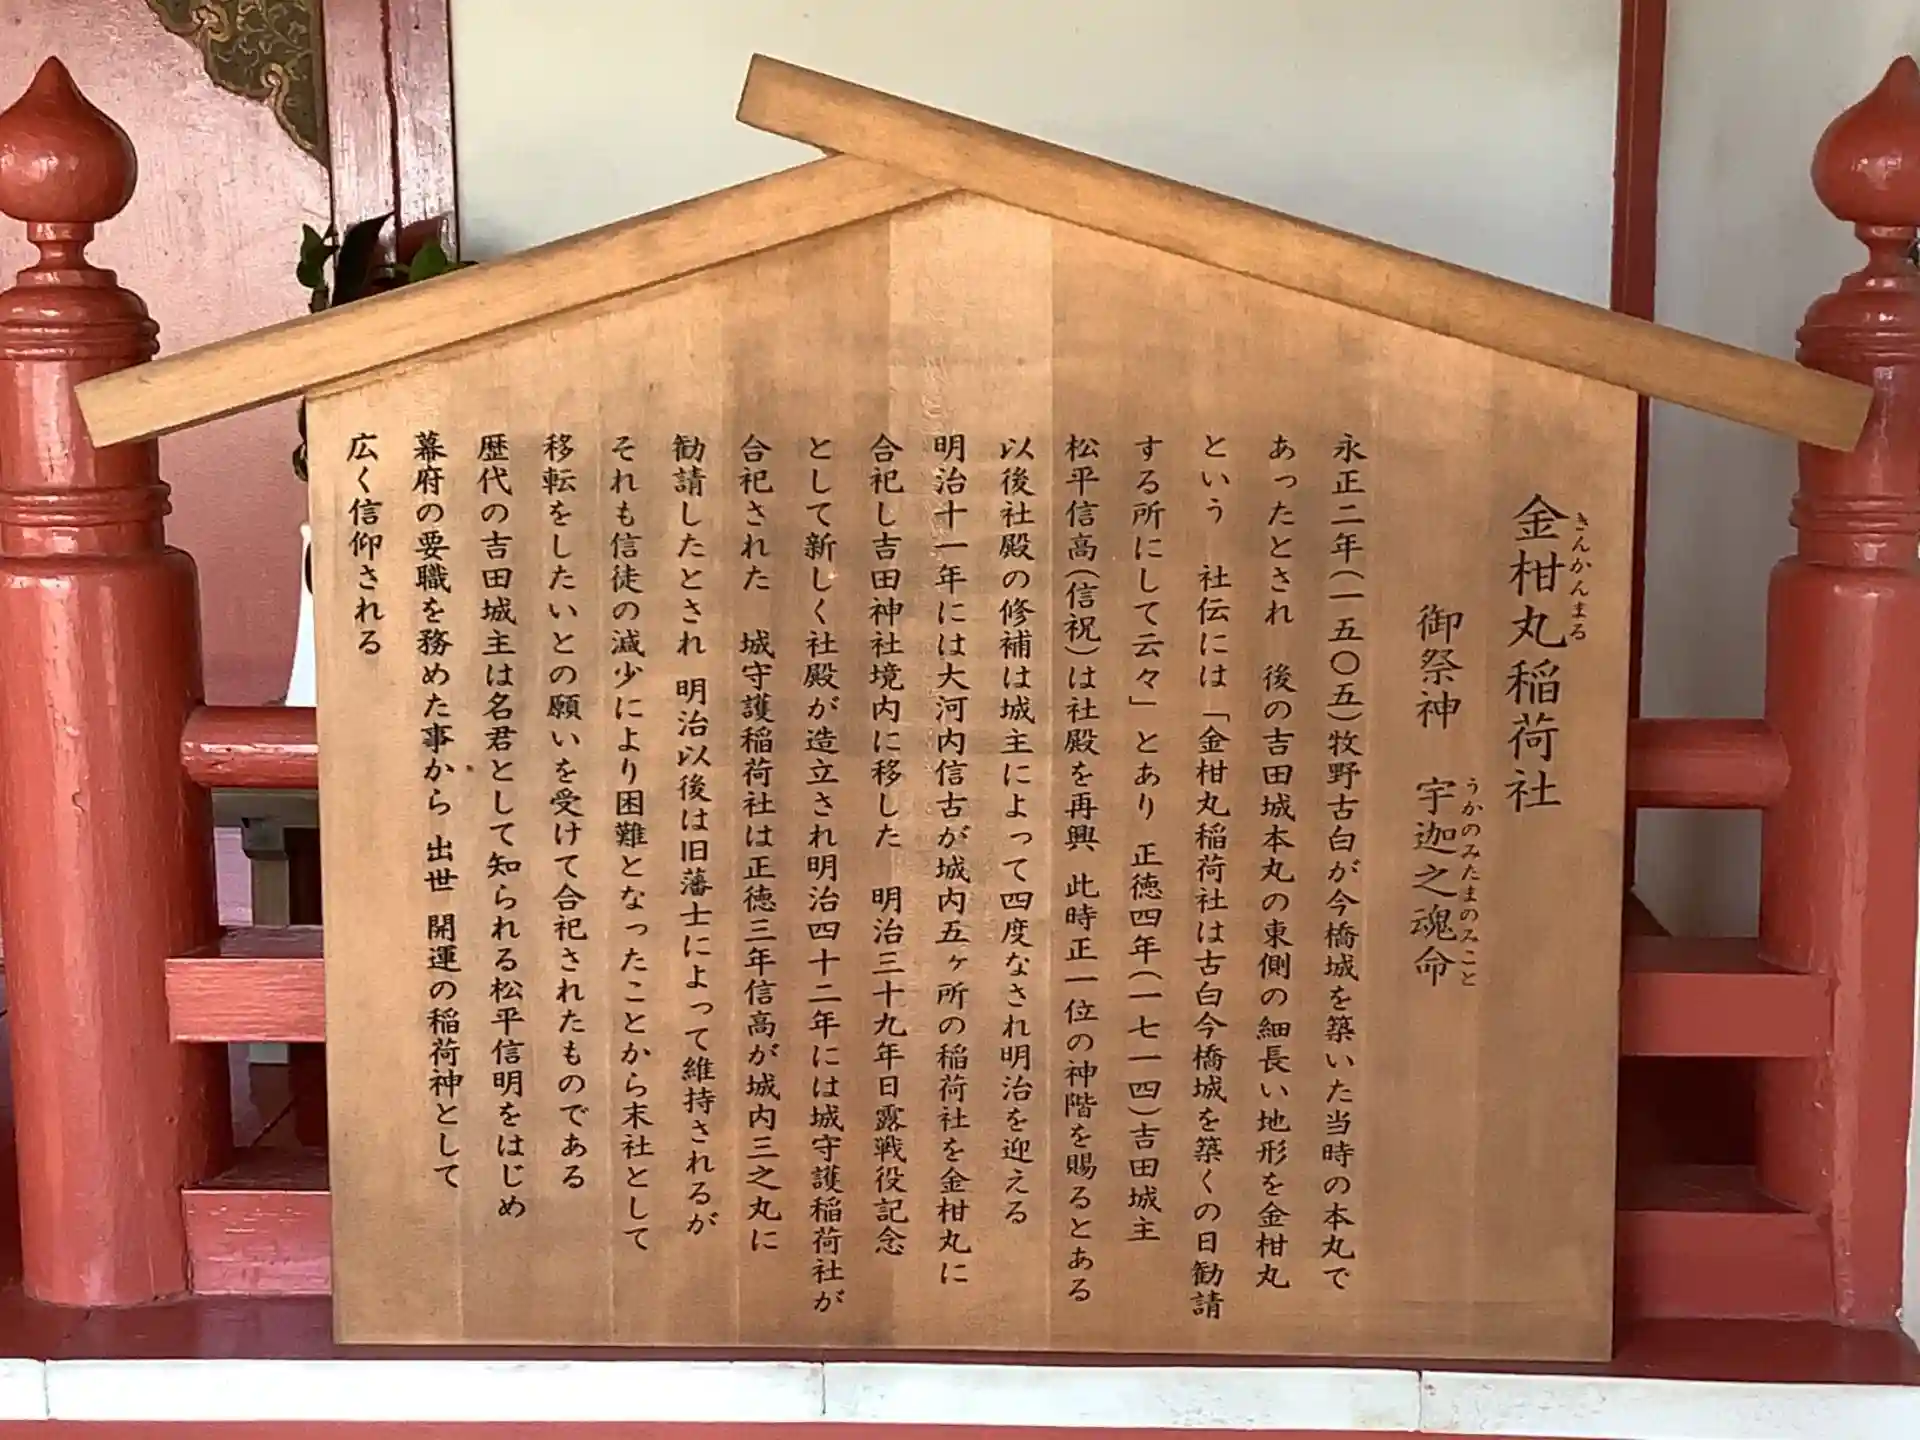 金柑丸稲荷社
きんかんまる
御祭神　宇迦之魂命
うかのみたまのみこと
永正二年(一五〇五)牧野古白が今橋城を築いた当時の本丸で
あったとされ　後の吉田城本丸の東側の細長い地形を金柑丸
という　社伝には「金柑丸稲荷社は古白今橋城を築くの日勧請
する所にして云々」とあり 正徳四年(一七一四)吉田城主
松平信高(信祝)は社殿を再興 此時正一位の神階を賜るとある
以後社殿の修補は城主によって四度なされ明治を迎える
明治十一年には大河内信古が城内五ヶ所の稲荷社を金柑丸に
合祀し吉田神社境内に移した　明治三十九年日露戦役記念
として新しく社殿が造立され明治四十二年には城守護稲荷社が
合祀された　城守護稲荷社は正徳三年信高が城内三之丸に
勧請したとされ 明治以後は旧藩士によって維持されるが
それも信徒の減少により困難となったことから末社として
移転をしたいとの願いを受けて合祀されたものである
歴代の吉田城主は名君として知られる松平信明をはじめ
幕府の要職を務めた事から 出世 開運の稲荷神として
広く信仰される